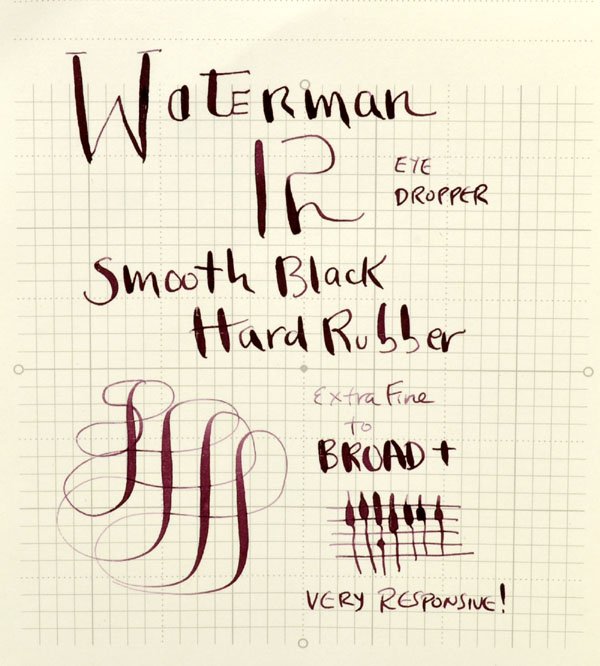 Waterman
12
EYE
DROPPER
Smooth Black
Hard Rubber
Extra Fine
to
BROAD +
VERY RESPONSIVE!